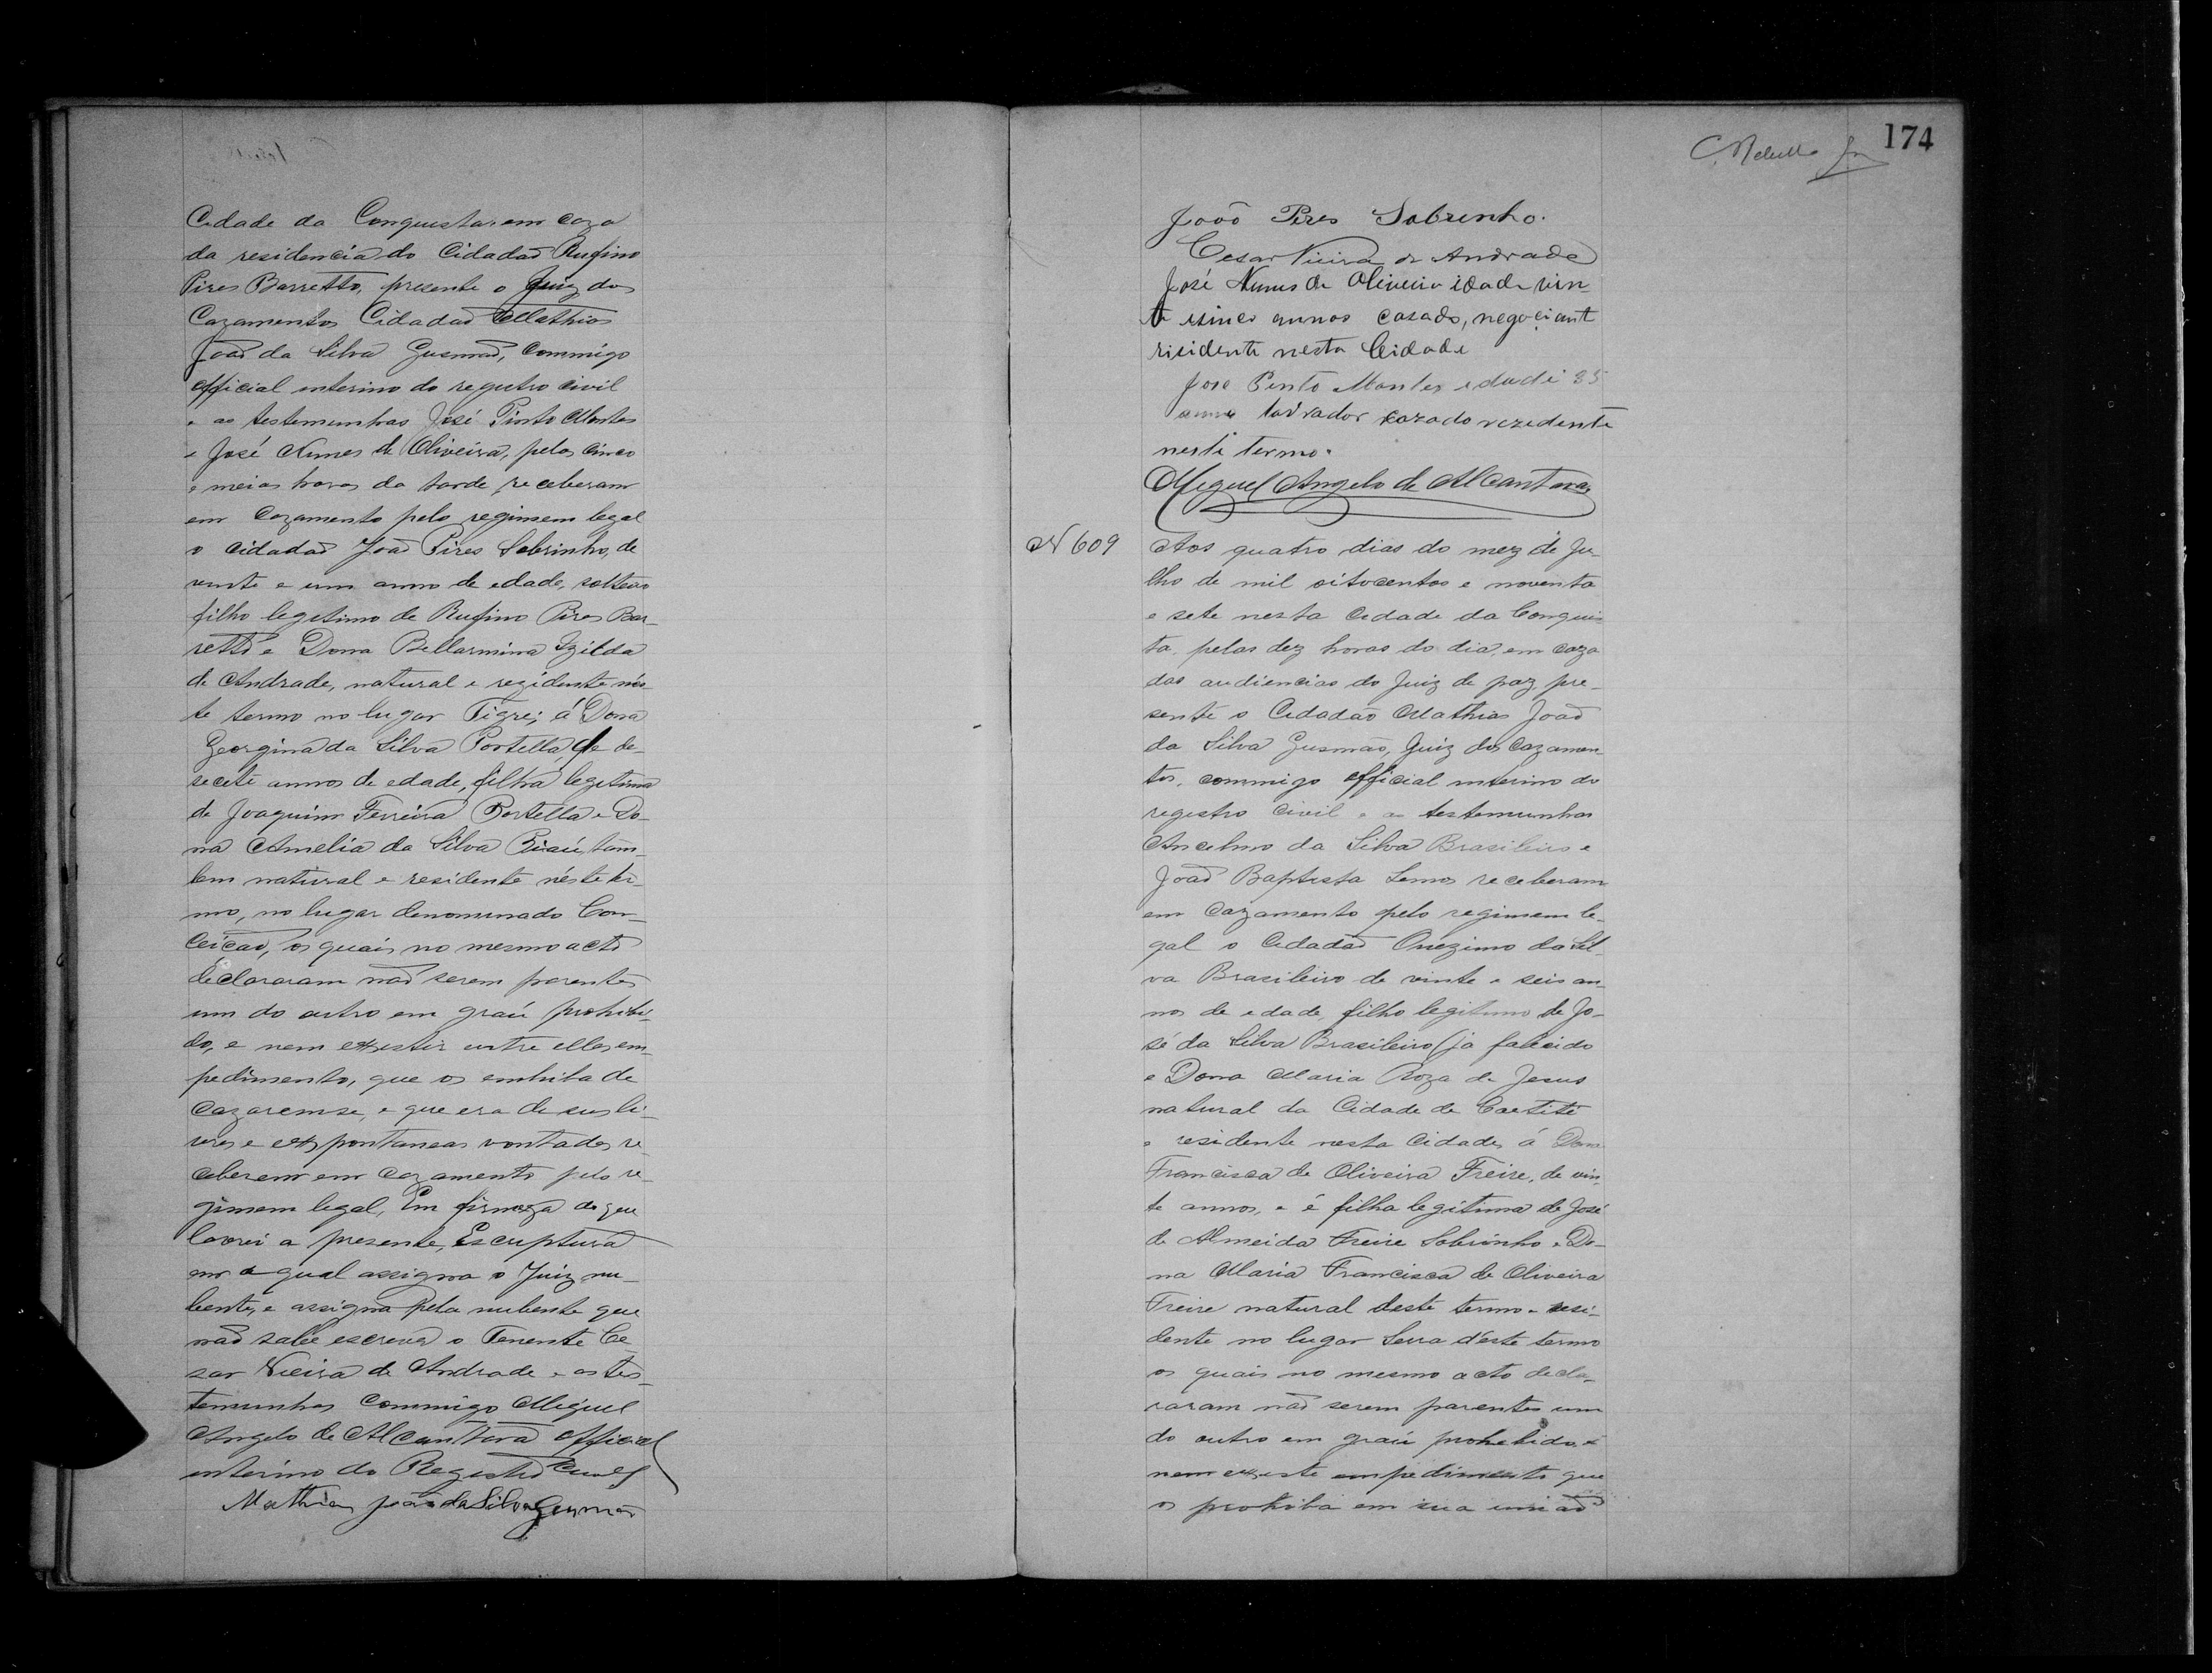 Cidade da Conquista, em caza
da residencia do Cidadaõ Rufino
Pires Barretto, presente o Juiz dos
Cazamentos Cidadaõ Mathias
Joaõ da Silva Gusmaõ, commigo
official enterino do registro civil
e as testemunhas José Pinto Montes
e José Nunes de Oliveira, pelas cinco
e meias horas da tarde, receberam
em Cazamento pelo regimem legal
o cidadaõ Joaõ Pires Sobrinho, de
vinte e um anno de edade, solteiro
filho legitimo de Rufino Pires Bar-
retto e Dona Bellarmina Izilda
de Andrade, natural e rezidente nés-
te termo no lugar Tigre; á Dona
Georgina da Silva Portella, de de-
secete annos de edade, filha legitima
de Joaquim Ferreira Portella e Do-
na Amelia da Silva Piauí, tam-
bem natural e residente néste ter-
mo, no lugar denominado Con-
ceicaõ, os quais no mesmo acto
declararam naõ serem parentes
um do outro em graú prohibi-
do, e nem existir entre elles em-
pedimento, que os enhiba de
cazaremse, e que era de sus li-
vres e expontaneas vontades re-
ceberem em cazamento pelo re-
gimem legal, Em firmeza do que
lavrei a presente, Escriptura
em a qual assigna o Juiz nu-
bente, e assigna pela nubente que
naõ sabe escrever o Tenente Ce-
sar Vieira de Andrade e as tes-
temunhas Commigo Miguel
Angelo de Alcantara official
enterino do Registro Civel
Mathias João da Silva Gusmão
174
João Pires Sobrinho.
Cesar Vieira de Andrade
José Nunes de Oliveira idade vin-
te esinco annos casado, negociant
risidente nesta Cidade
Jose Pinto Montes edade 35
annos lavrador cazado rezedente
neste termo.
Miguel Angelo de Alcantara
N 609
Aos quatro dias do mez de Ju-
lho de mil oitocentos e noventa
e sete nesta Cidade da Conquis
ta, pelas dez horas do dia, em caza
das audiencias do Juiz de paz, pre-
sente o Cidadão Mathias Joaõ
da Silva Gusmão, Juiz dos Cazamen-
tos, commigo official interino do
registro civil e as testemunhas
Ancelmo da Silva Brasileiro e
Joaõ Baptista Lemos receberam
em Cazamento pelo regimem le-
gal o Cidadaõ Onezimo da Sil-
va Brasileiro de vinte e seis an-
nos de edade, filho legitimo de Jo-
sé da Silva Brasileiro (ja falecido
e Dona Maria Roza de Jesus
natural da Cidade de Caetité
e residente nesta Cidade, á Dona
Francisca de Oliveira Freire, de vin-
te annos, e é filha legitima de José
de Almeida Freire Sobrinho e Do-
na Maria Francisca de Oliveira
Freire natural deste termo e resi-
dente no lugar Serra d'este termo
os quais no mesmo acto decla-
raram naõ serem parentes um
do outro em graú prohebido, e
nem existe empedimento que
os prohiba em sua uniaõ